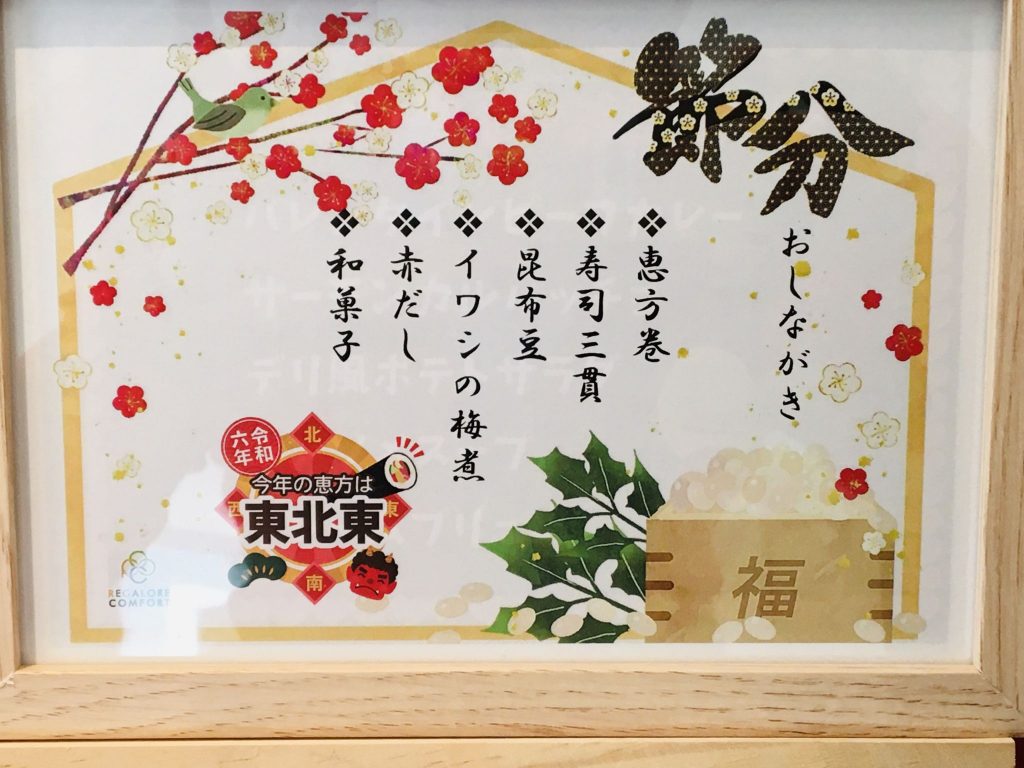 節分
おしながき
❖恵方巻
❖寿司三貫
❖昆布豆
❖イワシの梅煮
❖赤だし
❖和菓子
令和
六年
北
今年の恵方は
西
東
東北東
南
福
REGALORE
COMFORT